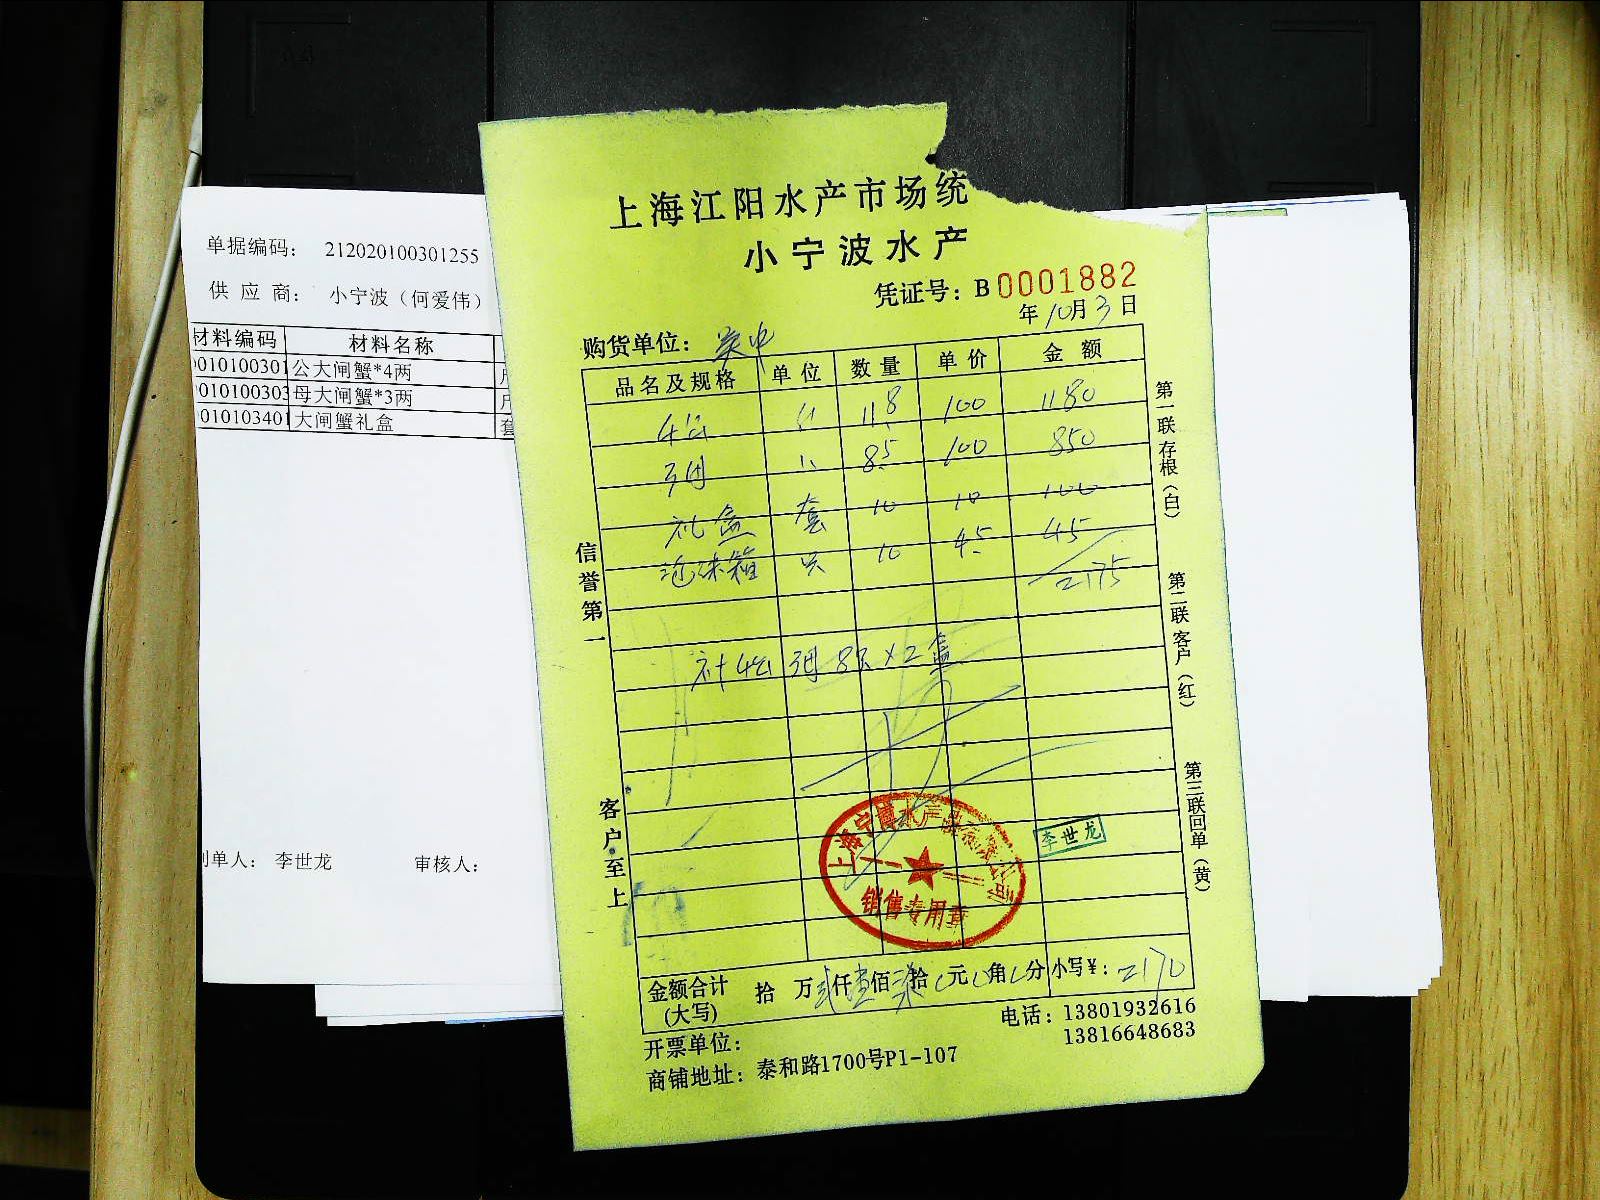 单据编码： 212020100301255
供 应 商： 小宁波（何爱伟）
材料编码 材料名称
010100301 公大闸蟹*4两
010100303 母大闸蟹*3两
010103401 大闸蟹礼盒 套
制单人： 李世龙 审核人：
上海江阳水产市场统
小宁波水产
凭证号：B0001882
年10月3日
购货单位：
品名及规格 单位 数量 单价 金额
4公 11.8 100 1180
3母 8.5 100 850
礼盒 套 10 10 100
泡沫箱 只 10 4.5 45
2175
补4公 3母 8只×2盒
信誉第一
客户至上
第一联存根（白）
第二联客户（红）
第三联回单（黄）
上海宁博水产品有限公司
销售专用章
李世龙
金额合计(大写) 拾 万贰仟壹佰柒拾 元 角 分 小写¥：2170
电话：13801932616
13816648683
开票单位：
商铺地址：泰和路1700号P1-107